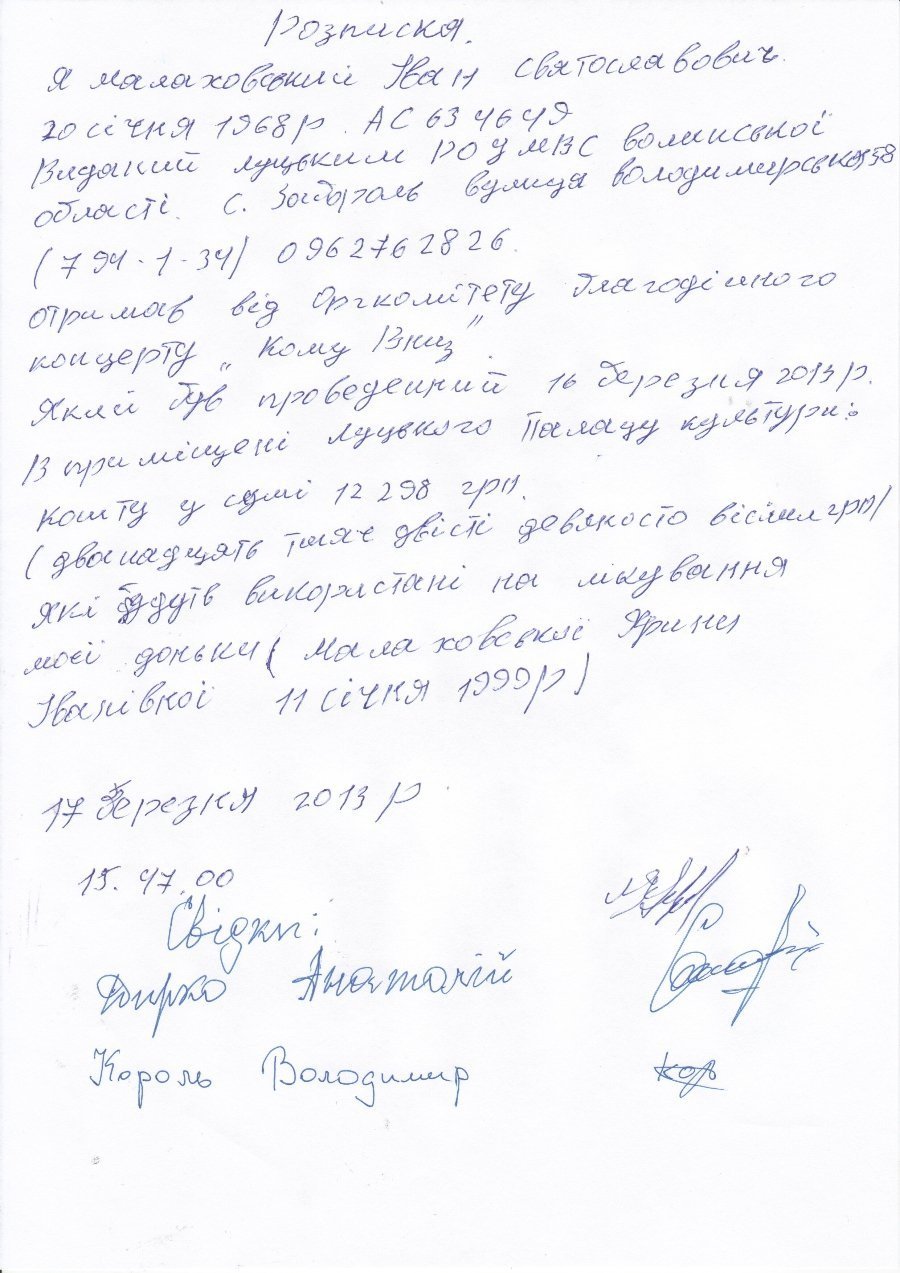 Розписка.
Я Малаховський Іван Святославович.
20 січня 1968 р. АС 634649
Виданий Луцьким РОУМВС Волинської
області. с. Забороль вулиця Володимирська 38
(794-1-34) 0962762826.
отримав від Оргкомітету благодійного
концерту „Кому Вниз".
Який був проведенний 16 березня 2013 р.
В приміщені Луцького Палацу культури:
кошту у сумі 12 298 грн.
(дванадцять тисяч двісті девяносто вісім грн)
які будуть використані на лікування
моєї доньки (Малаховської Ярини
Іванівної 11 січня 1999 р)
17 березня 2013 р
15.47.00
Свідки:
Анатолій
Король Володимир
Кор